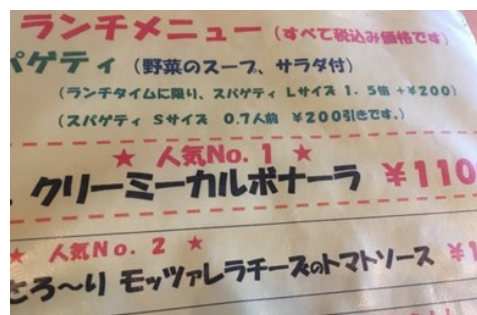 ランチメニュー(すべて税込み価格です)
パゲティ(野菜のスープ、サラダ付)
(ランチタイムに限り、スパゲティ Lサイズ 1.5倍 +¥200)
(スパゲティ Sサイズ 0.7人前 ¥200引きです。)
★ 人気No.1 ★
クリーミーカルボナーラ ¥110
★ 人気No.2 ★
とろ〜り モッツァレラチーズのトマトソース ¥1